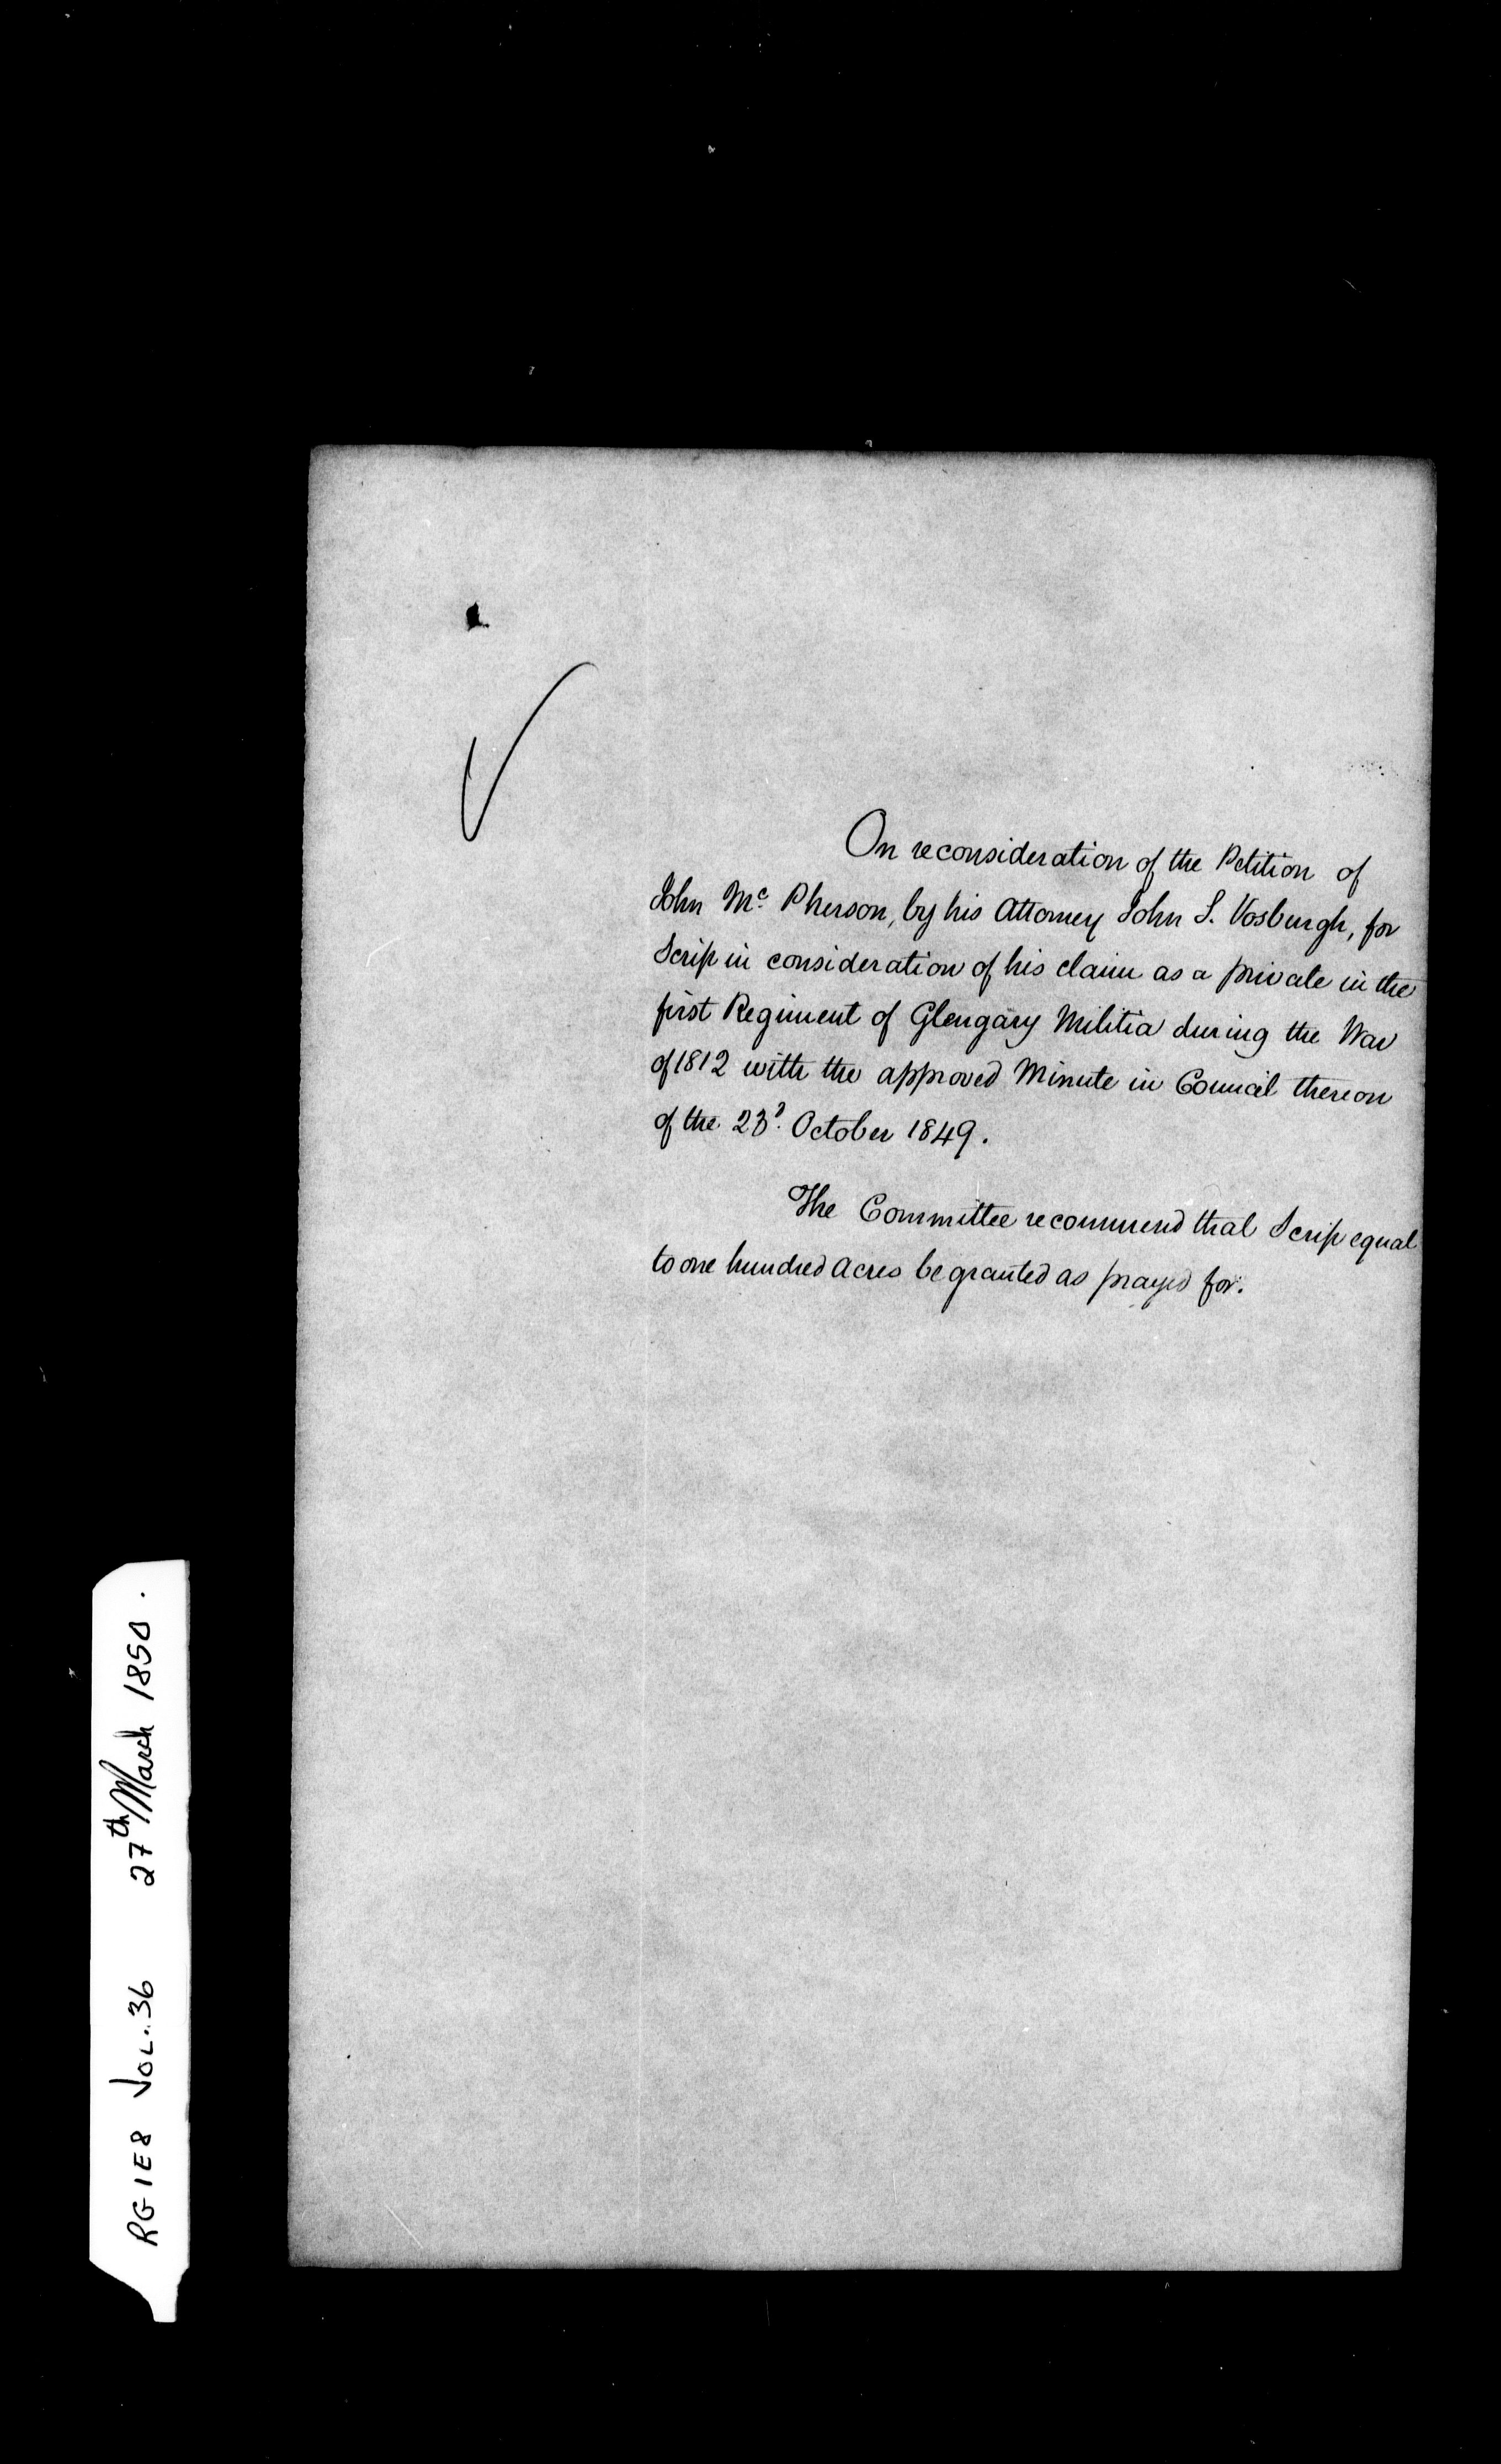 On reconsideration of the Petition of
John Mc. Pherson, by his Attorney John S. Vosburgh, for
Scrip in consideration of his claim as a private in the
first Regiment of Glengary Militia during the War
of 1812 with the approved Minute in Council thereon
of the 23d. October 1849.
The Committee recommend that Scrip equal
to one hundred acres be granted as prayed for.
RG 1E8 VOL. 36 27th March 1850.